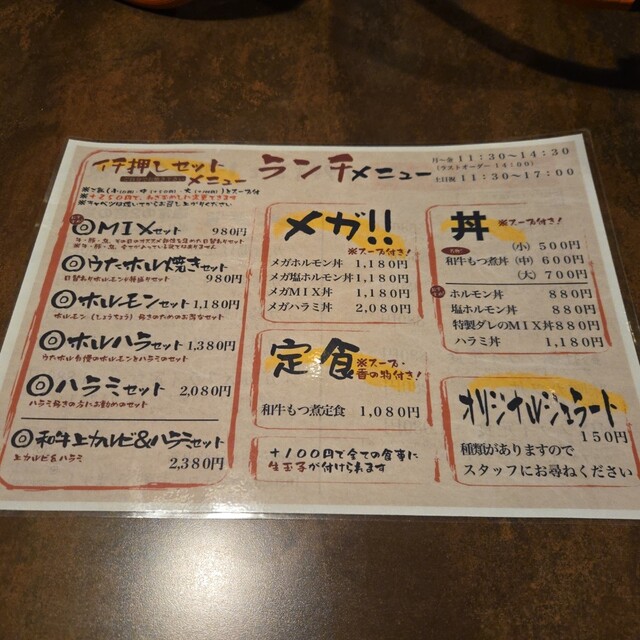 イチ押しセット
メニュー
ランチメニュー
月~金 11:30~14:30
(ラストオーダー 14:00)
土日祝 11:30~17:00
※キャベツは焼いてからお召し上がりください
◎MIXセット 980円
◎うたホル焼きセット
980円
◎ホルモンセット 1,180円
ホルモン(しょうちょう)好きのためのお得なセット
◎ホルハラセット 1,380円
うたホル自慢のホルモンとハラミのセット
◎ハラミセット 2,080円
ハラミ好きの方にお勧めのセット
◎和牛上カルビ&ハラミセット
上カルビ&ハラミ
2,380円
メガ!!
※スープ付き!
メガホルモン丼 1,180円
メガ塩ホルモン丼 1,180円
メガMIX丼 1,180円
メガハラミ丼 2,080円
定食
※スープ・
香の物付き!
和牛もつ煮定食 1,080円
+100円で全ての食事に
生玉子が付けられます
丼 ※スープ付き!
(小) 500円
和牛もつ煮丼 (中) 600円
(大) 700円
ホルモン丼 880円
塩ホルモン丼 880円
特製ダレのMIX丼 880円
ハラミ丼 1,180円
オリジナルジェラート
150円
種類がありますので
スタッフにお尋ねください